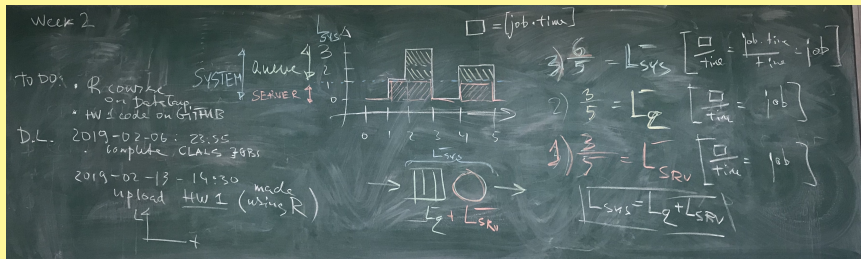 Week 2
TO DO: • R course
on DataCamp
• HW1 code on GITHUB
D.L. 2019-02-06: 23:55
• Complete CLASS
2019-02-13 - 14:30
upload HW1 (made using R)
L
t
L sys
3
2
1
0
SYSTEM
Queue
SERVER
0 1 2 3 4 5
L sys
Lq + L SRV
□ = [job·time]
3) 6/5 = L sys [□/time = job·time/time = job]
2) 3/5 = Lq [□/time = job]
1) 3/5 = L SRV [□/time = job]
L sys = Lq + L SRV